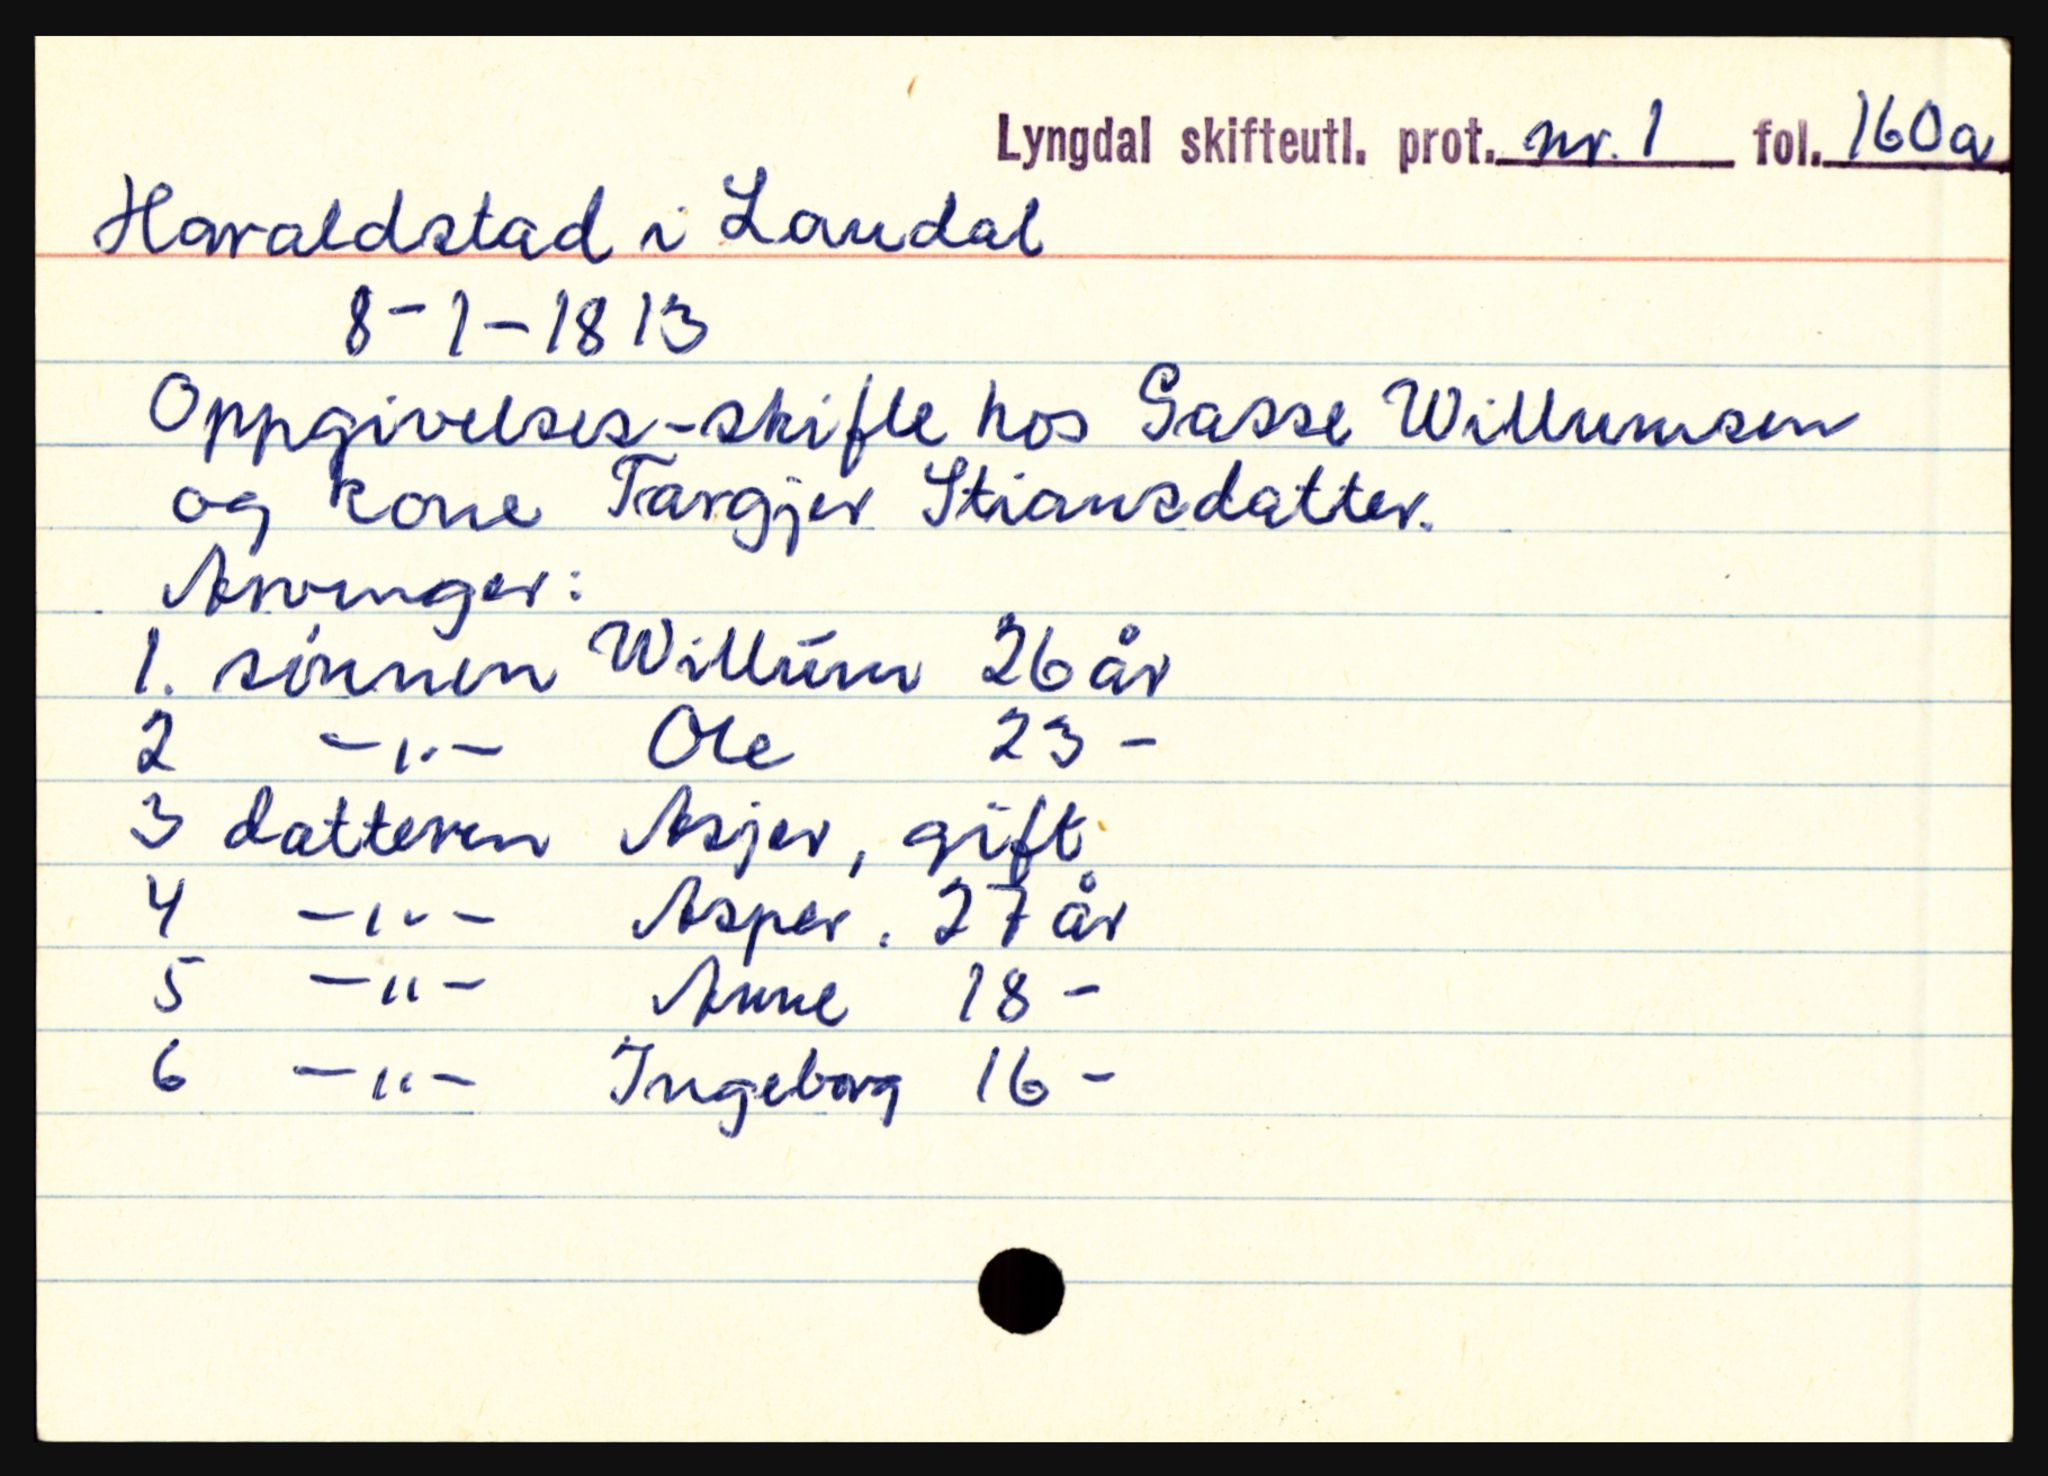 Lyngdal skifteutl. prot. nr. 1 fol. 160a
Haraldstad i Laudal
8-1-1813
Oppgivelses-skifte hos Gasse Willumsen
og kone Targjer Stiansdatter.
Arvinger:
1. sønnen Willum 26 år
2 -"- Ole 23 -
3 datteren Asjer, gift
4 -"- Asper. 27 år
5 -"- Anne 18 -
6 -"- Ingeborg 16 -